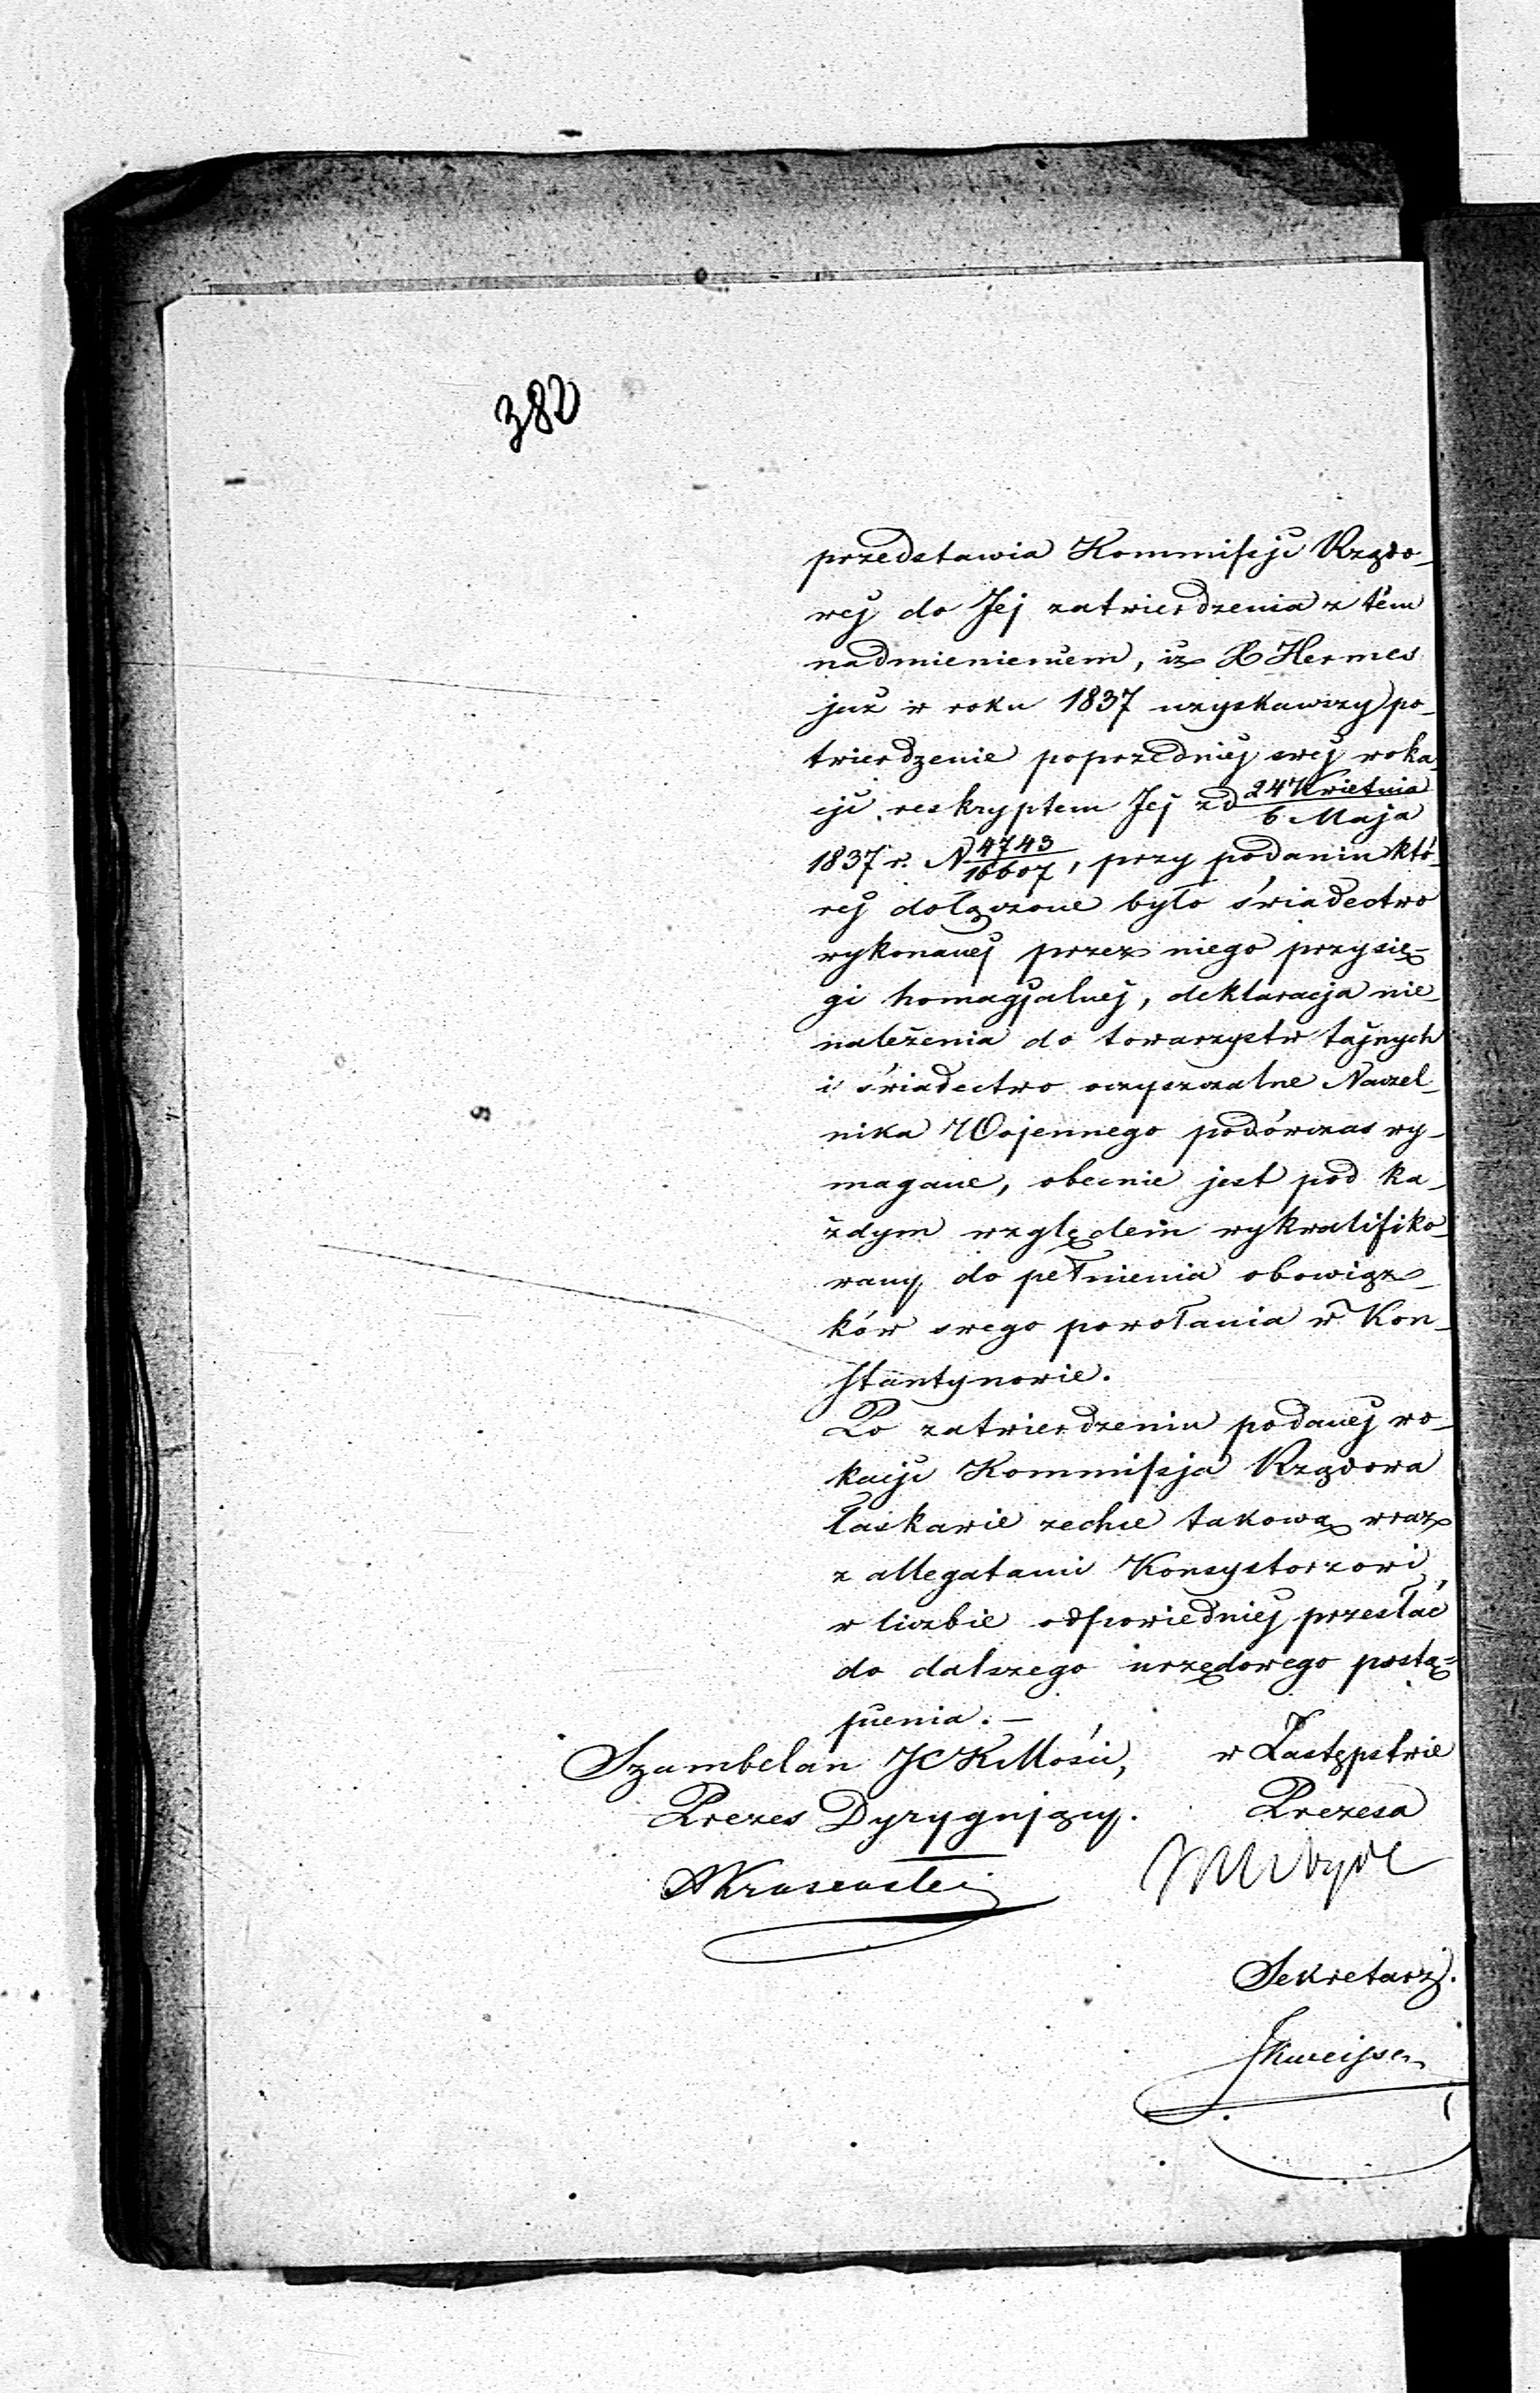 382
przedstawia Kommissji Rządo-
wej do Jej zatwierdzenia z tém
nadmienieniem, iż X Hermes
już w roku 1837 uzyskawszy po-
twierdzenie poprzedniéj swéj woka-
cji reskryptem Jej z d 24 Kwietnia / 6 Maja
1837 r. N 4743 / 16607, przy podaniu któ-
réj dołączone było świadectwo
wykonanéj przez niego przysię-
gi homagjalnéj, deklaracja nie-
należenia do towarzystw tajnych
i świadectwo oczyszczalne Naczel-
nika Wojennego podówczas wy-
magane, obecnie jest pod ka-
żdym względem wykwalifiko-
wany do pełnienia obowiąz-
ków swego powołania w Kon-
stantynowie.
Po zatwierdzeniu podanéj wo-
kacji Kommissja Rządowa
łaskawie zechce takową wraz
z allegatami Konsystorzowi
w liczbie odpowiedniéj przesłać
do dalszego urzędowego postą-
pienia. —
Szambelan JCKMości, w Zastępstwie
Prezes Dyrygujący. Prezesa
Sekretarz.